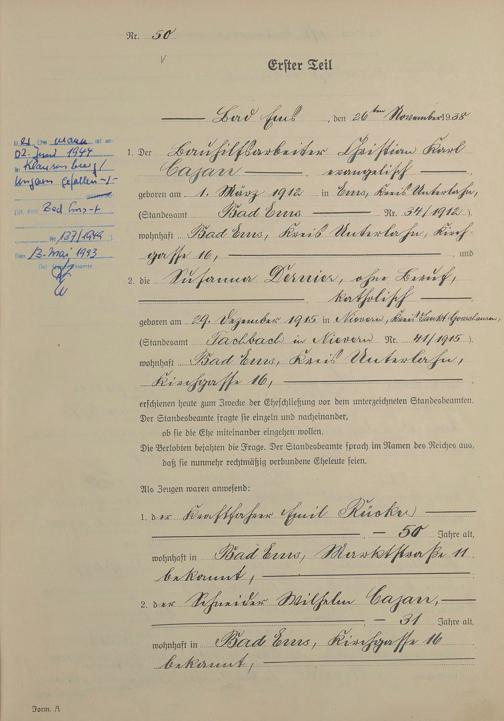 Nr. 50
Erster Teil
Bad Ems, den 26ten November 1938
1. Der Bauhilfsarbeiter Christian Karl
Cazan evangelisch
geboren am 1. März 1912 in Ems, Kreis Unterlahn,
(Standesamt Bad Ems Nr. 34/1912)
wohnhaft Bad Ems, Kreis Unterlahn, Kirch-
gasse 16, und
2. die Susanna Dernier, ohne Beruf,
katholisch
geboren am 29. Dezember 1915 in Nievern, Kreis Sankt Goarshausen,
(Standesamt Fachbach in Nievern Nr. 41/1915)
wohnhaft Bad Ems, Kreis Unterlahn,
Kirchgasse 16,
erschienen heute zum Zwecke der Eheschließung vor dem unterzeichneten Standesbeamten.
Der Standesbeamte fragte sie einzeln und nacheinander,
ob sie die Ehe miteinander eingehen wollen.
Die Verlobten bejahten die Frage. Der Standesbeamte sprach im Namen des Reiches aus,
daß sie nunmehr rechtmäßig verbundene Eheleute seien.
Als Zeugen waren anwesend:
1. der Kraftfahrer Emil Rücker
50 Jahre alt,
wohnhaft in Bad Ems, Marktstraße 11
bekannt,
2. der Schneider Wilhelm Cazan,
31 Jahre alt,
wohnhaft in Bad Ems, Kirchgasse 16
bekannt,
Ehemann ist am
02. Juni 1944
in Klausenburg/
Ungarn gefallen
Bad Ems
Nr. 137/1949
13. Mai 1993
Form. A